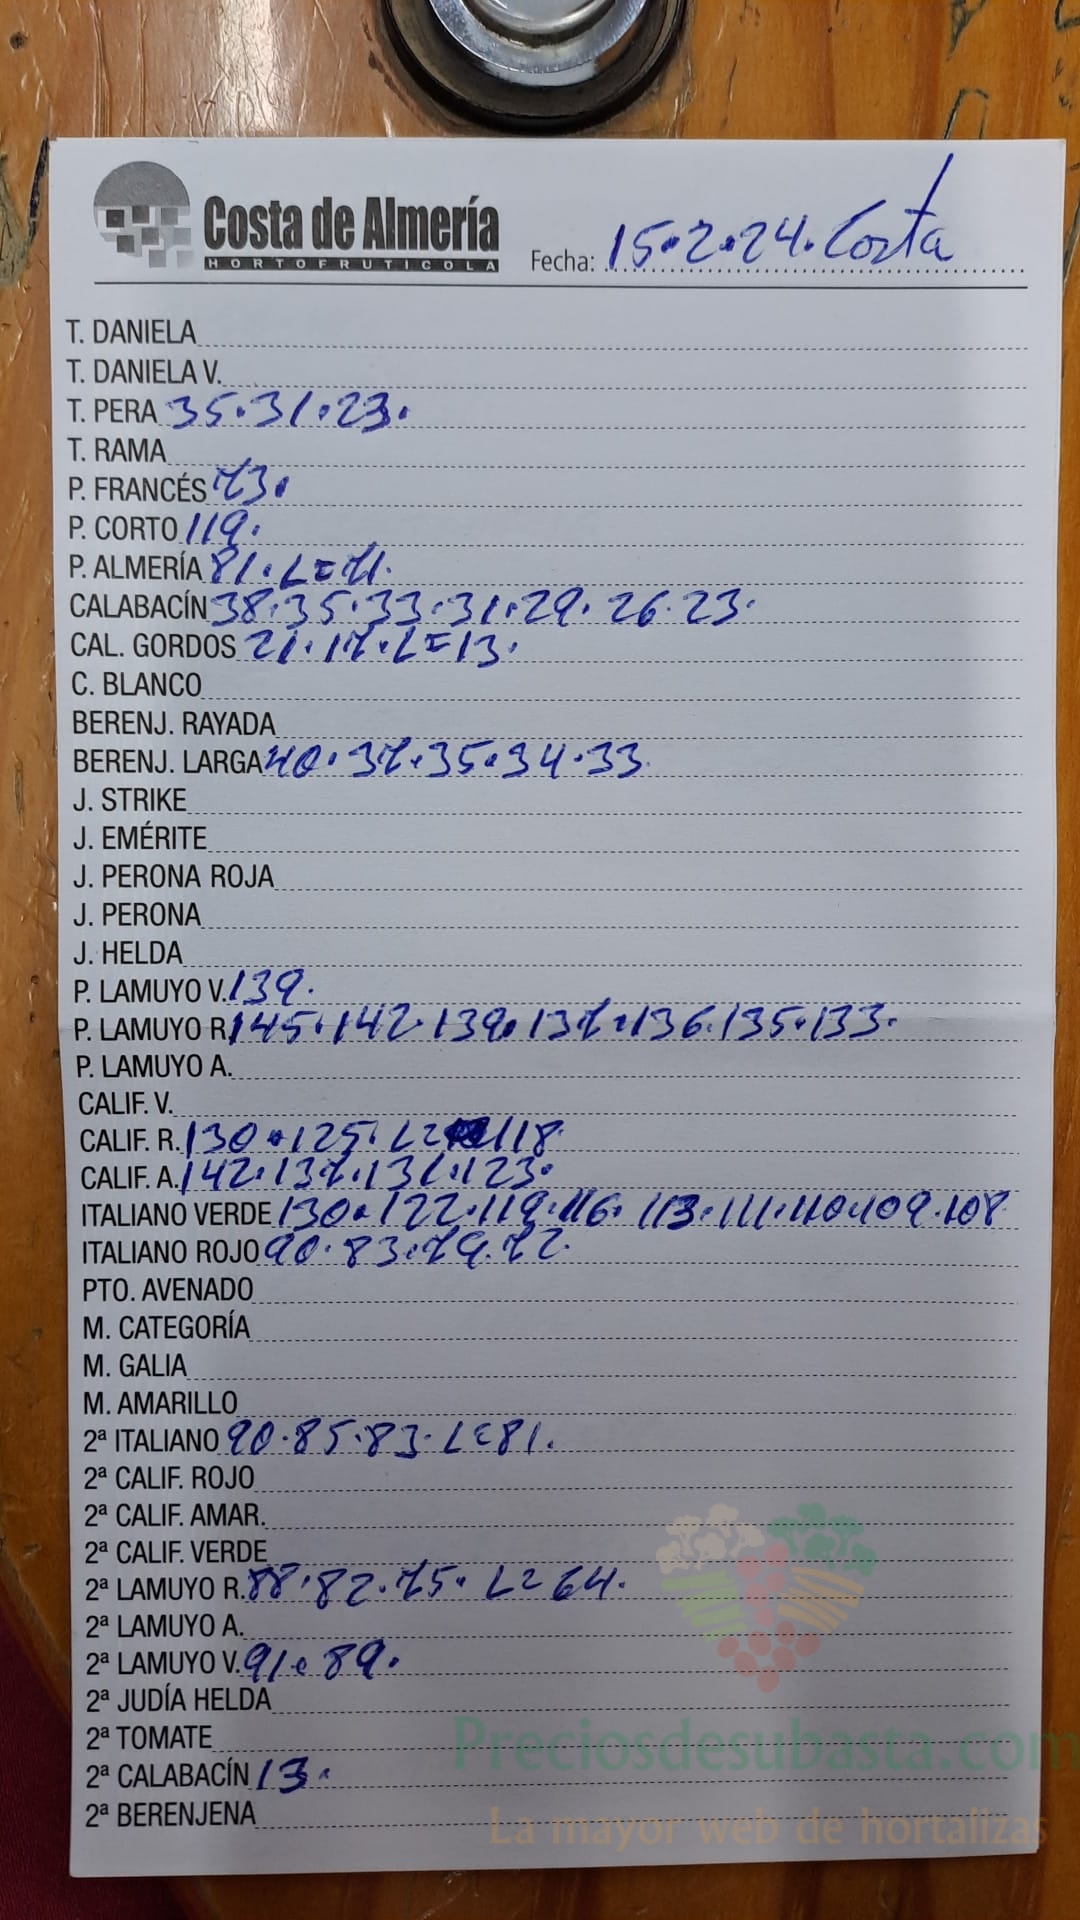 Costa de Almería
HORTOFRUTICOLA
Fecha: 15.2.24. Costa
T. DANIELA
T. DANIELA V.
T. PERA 35.31.23.
T. RAMA
P. FRANCÉS 73.
P. CORTO 119.
P. ALMERÍA 81. L=71.
CALABACÍN 38.35.33.31.29.26.23.
CAL. GORDOS 21.17.L=13.
C. BLANCO
BERENJ. RAYADA
BERENJ. LARGA 40.37.35.34.33.
J. STRIKE
J. EMÉRITE
J. PERONA ROJA
J. PERONA
J. HELDA
P. LAMUYO V. 139.
P. LAMUYO R. 145.142.139.137.136.135.133.
P. LAMUYO A.
CALIF. V.
CALIF. R. 130.125. L= 118
CALIF. A. 142.137.131.123.
ITALIANO VERDE 130.122.119.116.113.111.110.109.108
ITALIANO ROJO 90.83.79.72.
PTO. AVENADO
M. CATEGORÍA
M. GALIA
M. AMARILLO
2ª ITALIANO 90.85.83. L=81.
2ª CALIF. ROJO
2ª CALIF. AMAR.
2ª CALIF. VERDE
2ª LAMUYO R. 88.82.75. L=64.
2ª LAMUYO A.
2ª LAMUYO V. 91.89.
2ª JUDÍA HELDA
2ª TOMATE
Preciosdesubasta.com
2ª CALABACÍN 13.
2ª BERENJENA
La mayor web de hortalizas